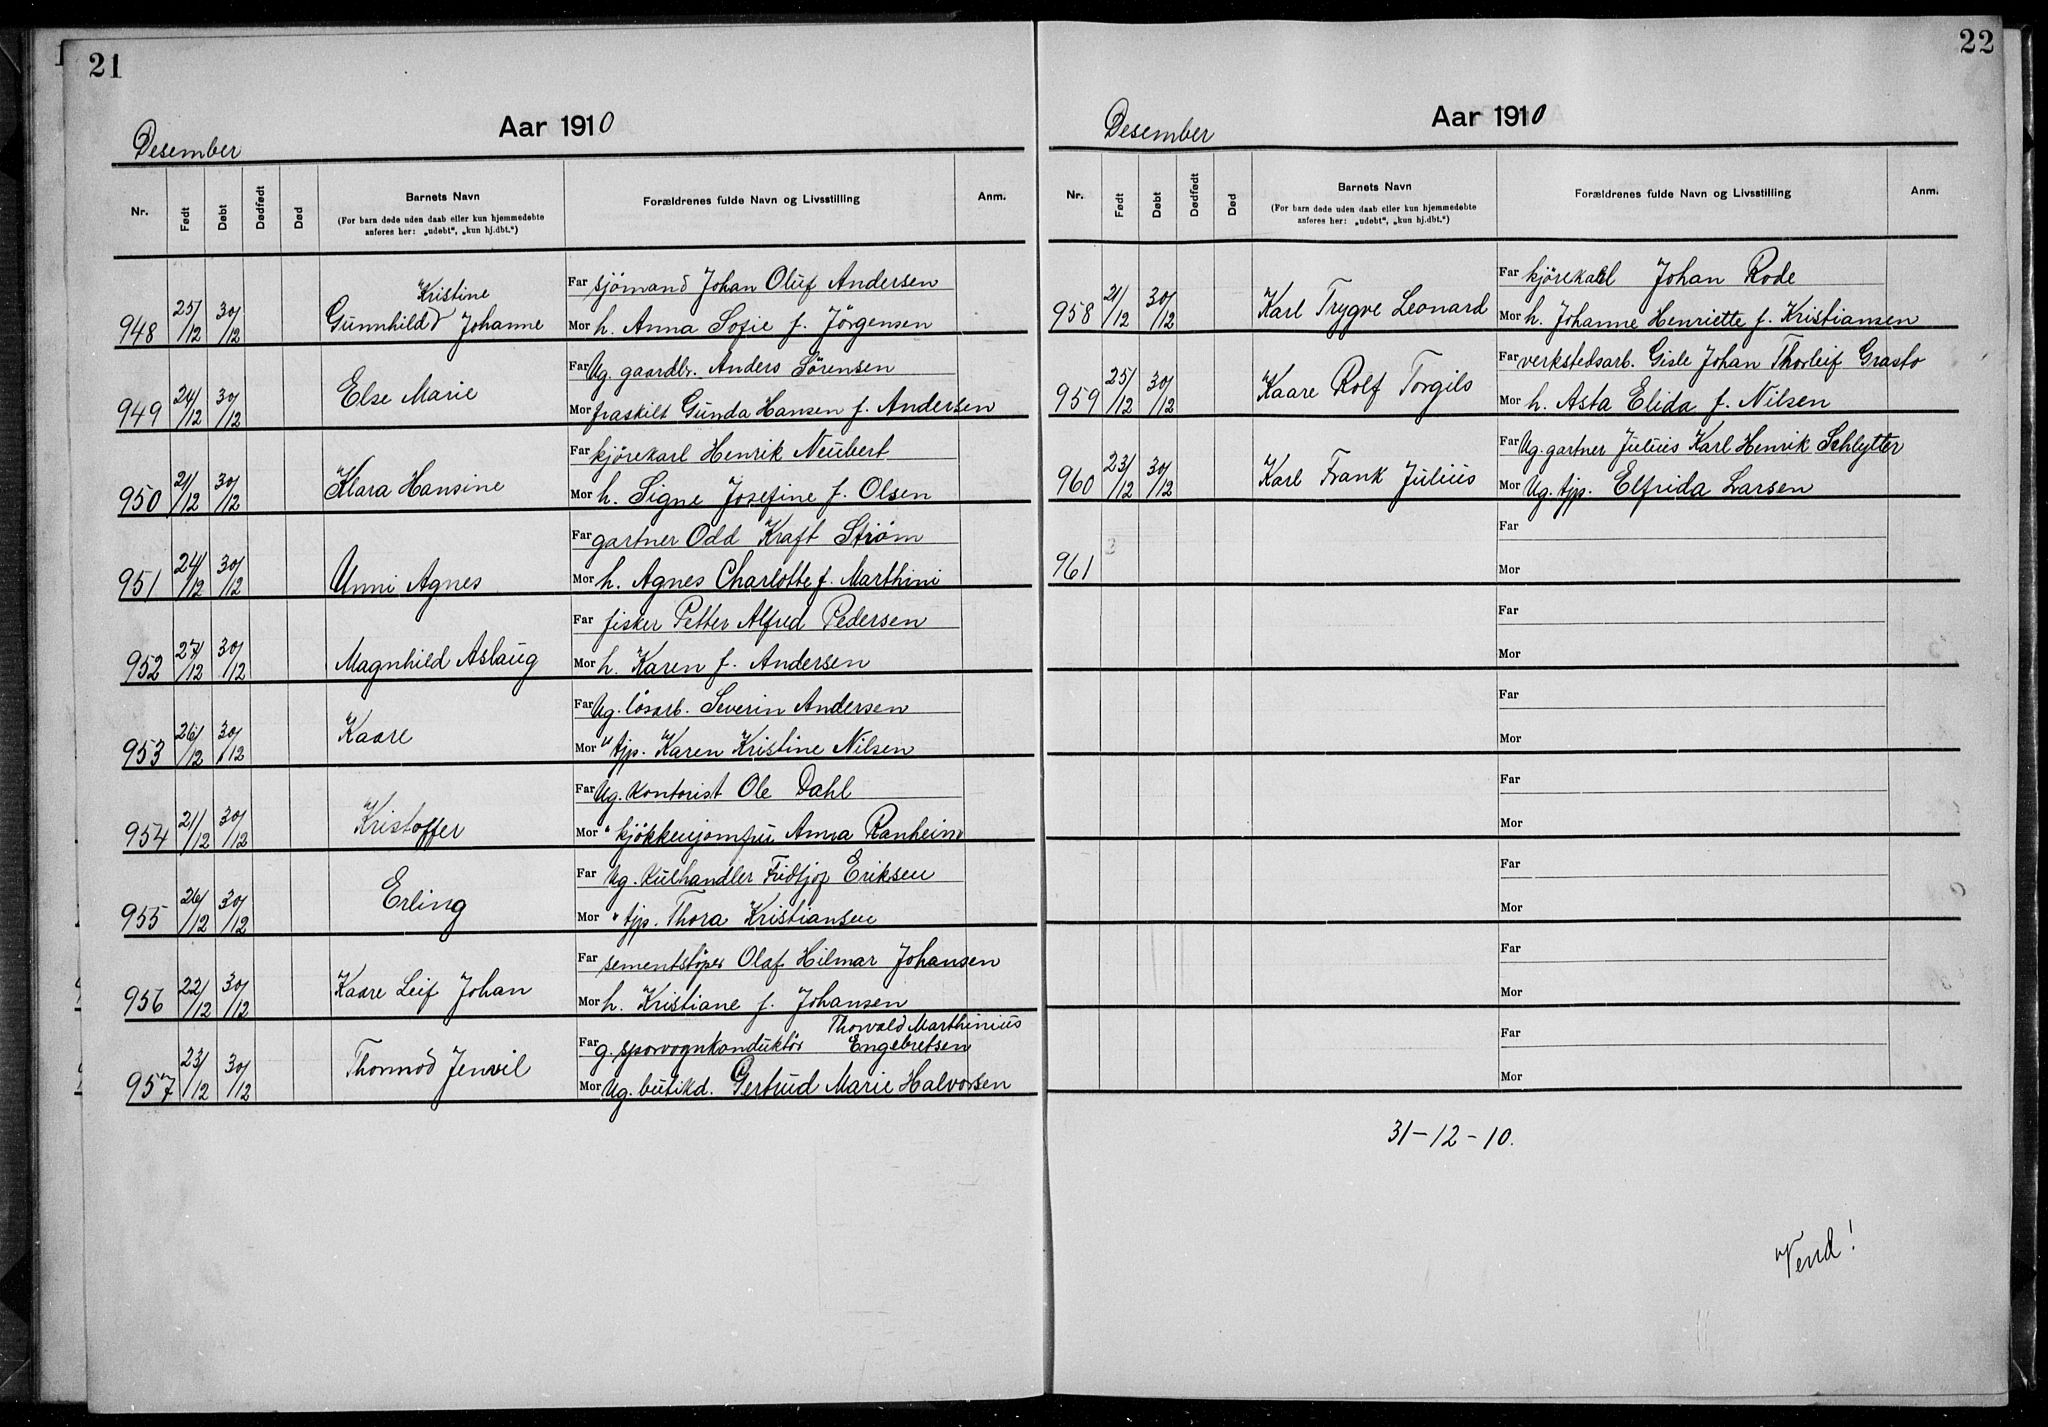 21
Aar 1910
Desember
Nr. Født Døbt Dødfødt Død Barnets Navn Forældrenes fulde Navn og Livsstilling Anm.
(For barn døde uden daab eller kun hjemmedøbte
anføres her: „udøbt“, „kun hj.dbt.“)
Kristine
Far sjömand Johan Oluf Andersen
948 25/12 30/12 Gunnhild Johanne
Mor h. Anna Sofie f. Jörgensen
Far Ug. gaardbr. Anders Sørensen
949 24/12 30/12 Else Marie
Mor fraskilt Gunda Hansen f. Andersen
Far kjörekarl Henrik Neubert
950 21/12 30/12 Klara Hansine
Mor h. Signe Josefine f. Olsen
Far gartner Odd Kraft Strøm
951 24/12 30/12 Unni Agnes
Mor h. Agnes Charlotte f. Marthini
Far fisker Petter Alfred Pedersen
952 27/12 30/12 Magnhild Aslaug
Mor h. Karen f. Andersen
Far Ug. lösarb. Severin Andersen
953 26/12 30/12 Kaare
Mor " tjp. Karen Kristine Nilsen
Far Ug. kontorist Ole Dahl
954 21/12 30/12 Kristoffer
Mor " kjökkenjomfru Anna Ranheim
Far Ug. kulhandler Fridtjof Eriksen
955 26/12 30/12 Erling
Mor " tjp. Thora Kristiansen
Far sementstöper Olaf Hilmar Johansen
956 22/12 30/12 Kaare Leif Johan
Mor h. Kristiane f. Johansen
Thorvald Marthinius
Far g. sporvognkonduktör Engebretsen
957 23/12 30/12 Thormod Jenvil
Mor Ug. butikd. Gertrud Marie Halvorsen
22
Aar 1910
Desember
Nr. Født Døbt Dødfødt Død Barnets Navn Forældrenes fulde Navn og Livsstilling Anm.
(For barn døde uden daab eller kun hjemmedøbte
anføres her: „udøbt“, „kun hj.dbt.“)
Far kjörekarl Johan Rode
958 21/12 30/12 Karl Trygve Leonard
Mor h. Johanne Henriette f. Kristiansen
Far verkstedsarb. Gisle Johan Thorleif Grasto
959 25/12 30/12 Kaare Rolf Torgils
Mor h. Asta Elida f. Nilsen
Far Ug. gartner Julius Karl Henrik Schlytter
960 23/12 30/12 Karl Frank Julius
Mor Ug. tjp. Elfrida Larsen
Far
961
Mor
Far
Mor
Far
Mor
Far
Mor
Far
Mor
Far
Mor
Far
Mor
31-12-10.
Vend!